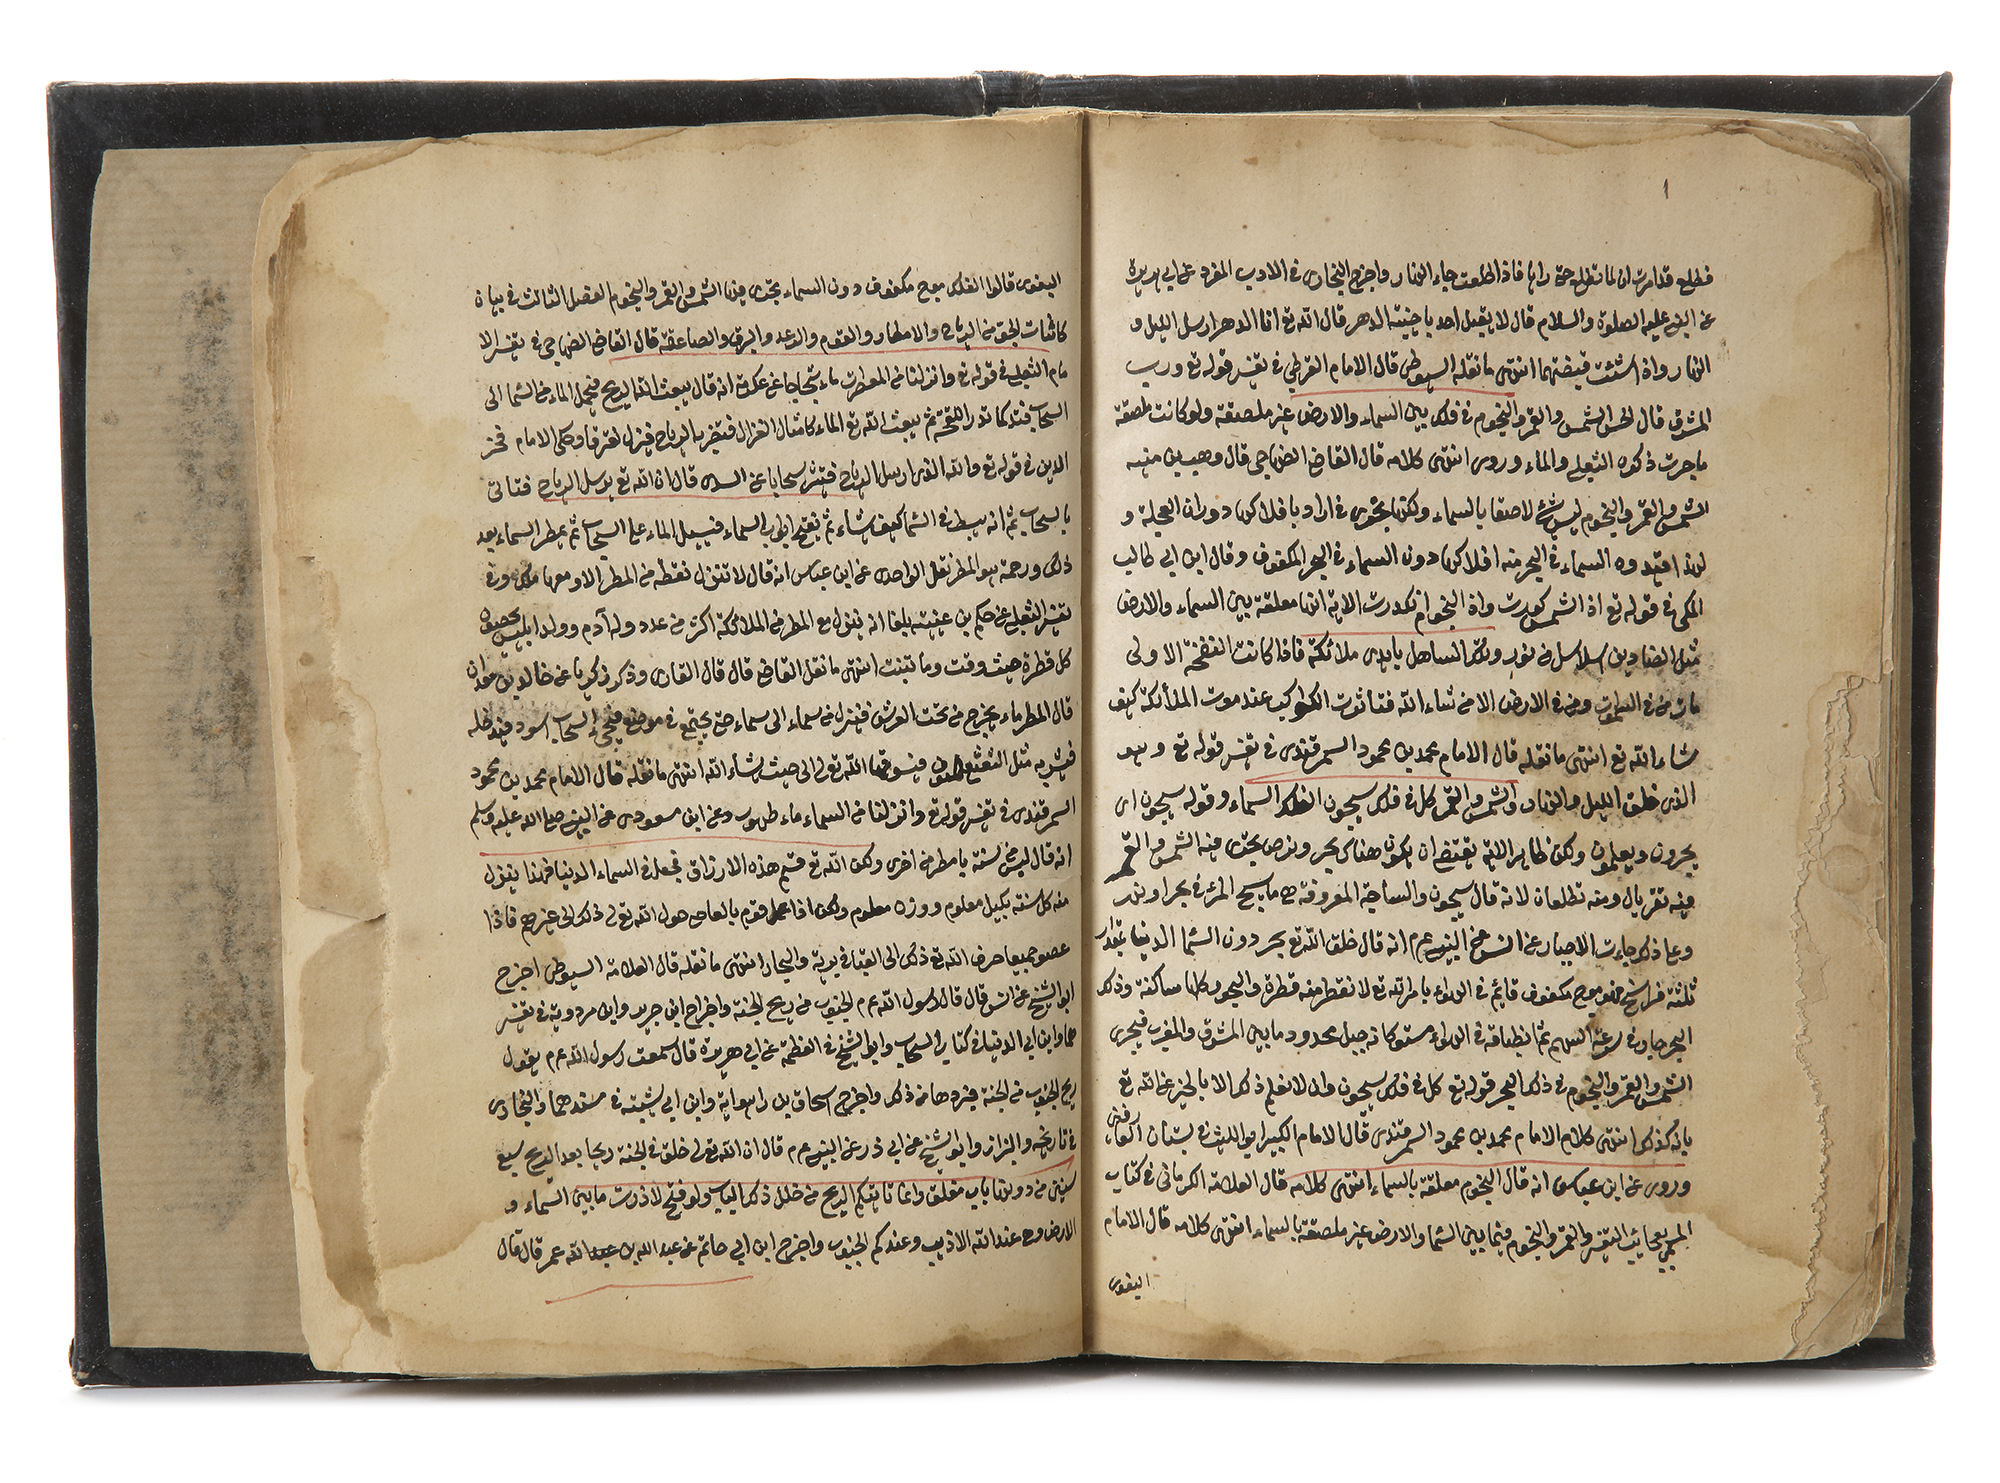 ١
فطلع قد امرت ان لا تطلع حتى راها فاذا طلعت جاء النهار واخرج البخارى في الادب المفرد عن ابى هريرة
عن النبى عليه الصلوة والسلام قال لا يقل احد يا خيبة الدهر قال الله تع انا الدهر ارسل الليل و
النهار واذا شئت قبضتهما انتهى ما نقله السيوطى قال الامام القرطبى في تفسير قوله تع ورب
المشرق قال الحسن الشمس والقمر والنجوم فى فلك بين السماء والارض غير ملصقة ولو كانت ملصقة
ما جرت ذكره الثعلبى والماوردى انتهى كلامه قال القاضى قال وهب بن منبه
الشمس والقمر والنجوم ليس شئ لاصقا بالسماء ولكن يجرى دوران العجلة و
السماء فى البحر دون السماء فى البحر المكفوف وقال ابن ابى طالب
المكى فى قوله تع اذا الشمس كورت واذا النجوم انكدرت الاية انها معلقة بين السماء والارض
مثل القناديل بسلاسل من نور وتلك السلاسل بايدى ملائكة فاذا كانت النفخة الاولى
مات من فى السموات ومن فى الارض الا من شاء الله فتناثرت الكواكب عند موت الملائكة كيف
شاء الله تع انتهى ما نقله قال الامام محمد بن محمود السمرقندى فى تفسير قوله تع وهو
الذى خلق الليل والنهار والشمس والقمر كل فى فلك يسبحون الفلك السماء وقوله يسبحون اى
يجرون ويعلمون ولكن ظاهر الاية يقتضى ان يكون هناك بحر ونهر يجرى فيه الشمس والقمر
ومنه تطلعان لانه قال يسبحون والسباحة المعروفة هى ما يسبح المرء فى بحر او نهر
وعلى ذلك جاءت الاخبار عن انس عن النبى عم انه قال خلق الله تع بحر دون السماء الدنيا بمقدار
ثلثة فراسخ فهو موج مكفوف قائم فى الهواء بامر الله تع لا تقطر منه قطرة والبحور كلها ساكنة وذلك
البحر جار فى سرعة السهم ثم انطباقه فى الهواء مستو كانه حبل ممدود ما بين المشرق والمغرب فيجرى
الشمس والقمر والنجوم فى ذلك البحر قوله تع كل فى فلك يسبحون وانا لا نعلم ذلك الا بالخبر عن الله تع
بانه كذلك انتهى كلام الامام محمد بن محمود السمرقندى قال الامام الكبير ابو الليث فى بستان العارفين
وروى عن ابن عباس انه قال النجوم معلقة بالسماء انتهى كلامه قال العلامة الكرمانى فى كتاب
المسمى بعجايب التفسير والقمر والنجوم فيما بين السماء والارض غير ملصقة بالسماء انتهى كلامه قال الامام
البغوى
البغوى قالوا الفلك موج مكفوف دون السماء يجرى فيه الشمس والقمر والنجوم الفصل الثالث فى بيان
كائنات الجو من الرياح والامطار والغيوم والرعد والبرق والصاعقة قال القاضى فى تفسير الا
مام الثعلبى فى قوله تع وانزلنا من المعصرات ماء ثجاجا عن عكرمة انه قال يبعث الله الريح فيحمل الماء من السماء الى
السحاب فتدر كما تدر اللقحة ثم يبعث الله تع الماء كامثال العزالى فتضربه الرياح فينزل متفرقا وحكى الامام فخر
الدين فى قوله تع والله الذى ارسل الرياح فتثير سحابا عن السدى قال ان الله تع يرسل الرياح فتاتى
بالسحاب ثم انه يبسطه فى السماء كيف يشاء ثم يفتح ابواب السماء فيسيل الماء على السحاب ثم يمطر السماء بعد
ذلك ورحمته هو المطر نقل الواحدى عن ابن عباس انه قال لا تنزل نقطة من المطر الا ومعها ملك وفى
تفسير الثعلبى عن حكم بن عتيبة بلغنا انه ينزل مع المطر من الملائكة اكثر من عدد ولد آدم وولد ابليس يحصون
كل قطرة حيث وقعت وما تنبت انتهى ما نقل القاضى قال قال القارى وذكر زكريا عن خالد بن معدان
قال المطر ماء يخرج من تحت العرش فينزل من سماء الى سماء حتى يجتمع فى موضع فيجئ السحاب اسود فتدخله
فتشربه فيسوقها الله تعالى الى حيث شاء الله انتهى ما نقله قال الامام محمد بن محمود
السمرقندى فى تفسير قوله تع وانزلنا من السماء ماء طهورا عن ابن مسعود عن النبى صلى الله عليه وسلم
انه قال ليس سنة بامطر من اخرى ولكن الله تع قسم هذه الارزاق فجعل فى السماء الدنيا فمنها ينزل
منه كل سنة بكيل معلوم ووزن معلوم ولكن اذا عمل قوم بالمعاصى حول الله تعالى ذلك الى غيرهم فاذا
عصوا جميعا صرف الله تع ذلك الى الفيافى والبحار انتهى ما نقله قال العلامة السيوطى اخرج
ابو الشيخ عن انس قال قال رسول الله عم الجنوب من ريح الجنة واخرج ابن جرير وابن مردوية فى تفسير
هما وابن ابى الدنيا فى كتاب السحاب وابو الشيخ فى العظمة عن ابى هريرة قال سمعت رسول الله عم يقول
ريح الجنوب من الجنة واخرج اسحاق بن راهوية وابن ابى شيبة فى مسندهما والبخارى
فى تاريخه والبزاز وابو الشيخ عن ابى ذر عن النبى عم قال ان الله تعالى خلق فى الجنة ريحا بعد الريح سبع
سنين من دونها باب مغلق وانما تاتيكم الريح من خلل ذلك الباب ولو فتح لاذرت ما بين السماء و
الارض وهى عند الله الازيب وعندكم الجنوب واخرج ابن ابى حاتم عن عبد الله بن عمر قال قال